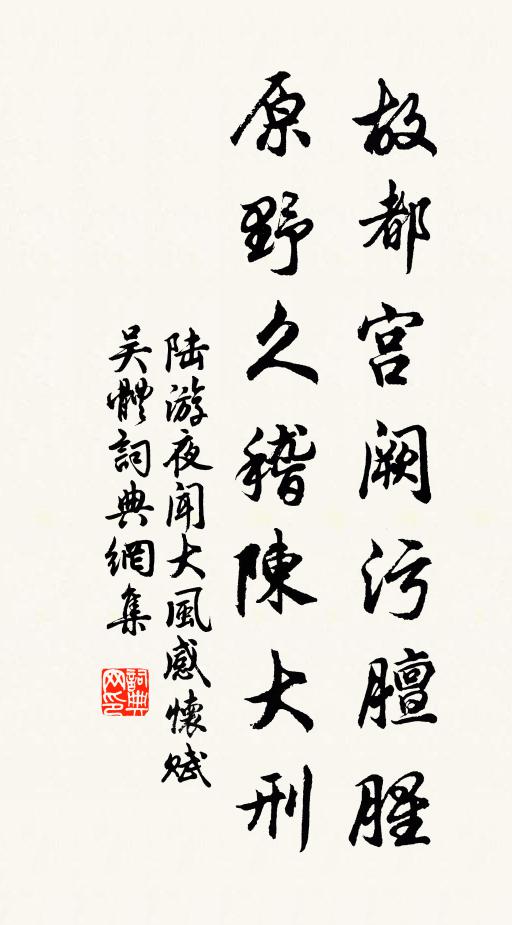 故都宫阙污膻腥
原野久稽陳大刑
陆游夜闻大風感懷赋
吴體詞典網集
詞典网印